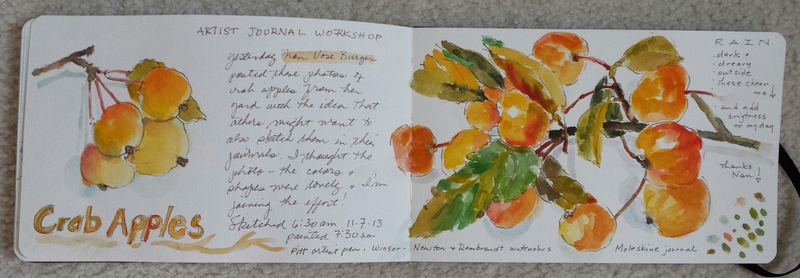 ARTIST JOURNAL WORKSHOP
yesterday Nan Vose Burger
posted these photos of
crab apples from her
yard with the idea that
others might want to
also sketch them in their
journals. I thought the
photo - the colors &
shapes were lovely & I'm
joining the effort!
Sketched 6:30am 11.7.13
painted 7:30am
Pitt artist pen. Winsor-Newton & Rembrandt watercolors Moleskine journal
Crab Apples
RAIN
• dark &
• dreary
• outside
• these cheer
me!
• and add
brightness
to my day
thanks
Nan!